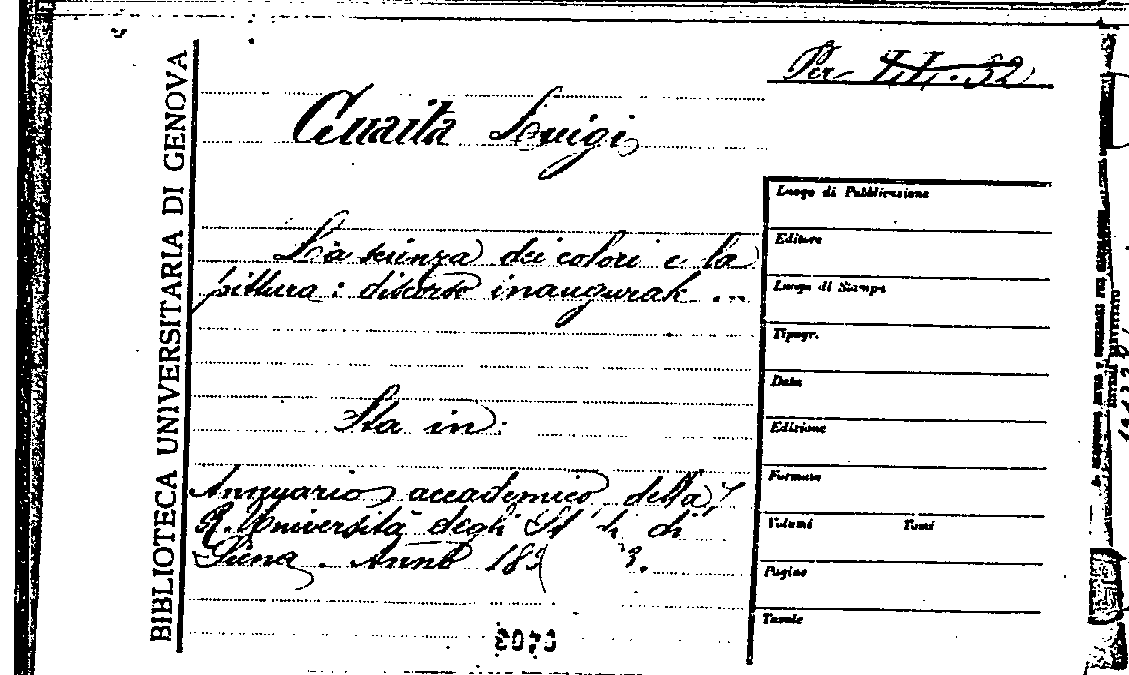 Per
Guaita Luigi
La scienza dei colori e la
pittura: discorso inaugurale ...
Sta in:
Annuario accademico della
R. Università degli St di
Siena. Anno 189 3.
BIBLIOTECA UNIVERSITARIA DI GENOVA
Luogo di Pubblicazione
Editore
Luogo di Stampa
Tipogr.
Data
Edizione
Formato
Volumi Tomi
Pagine
Tavole